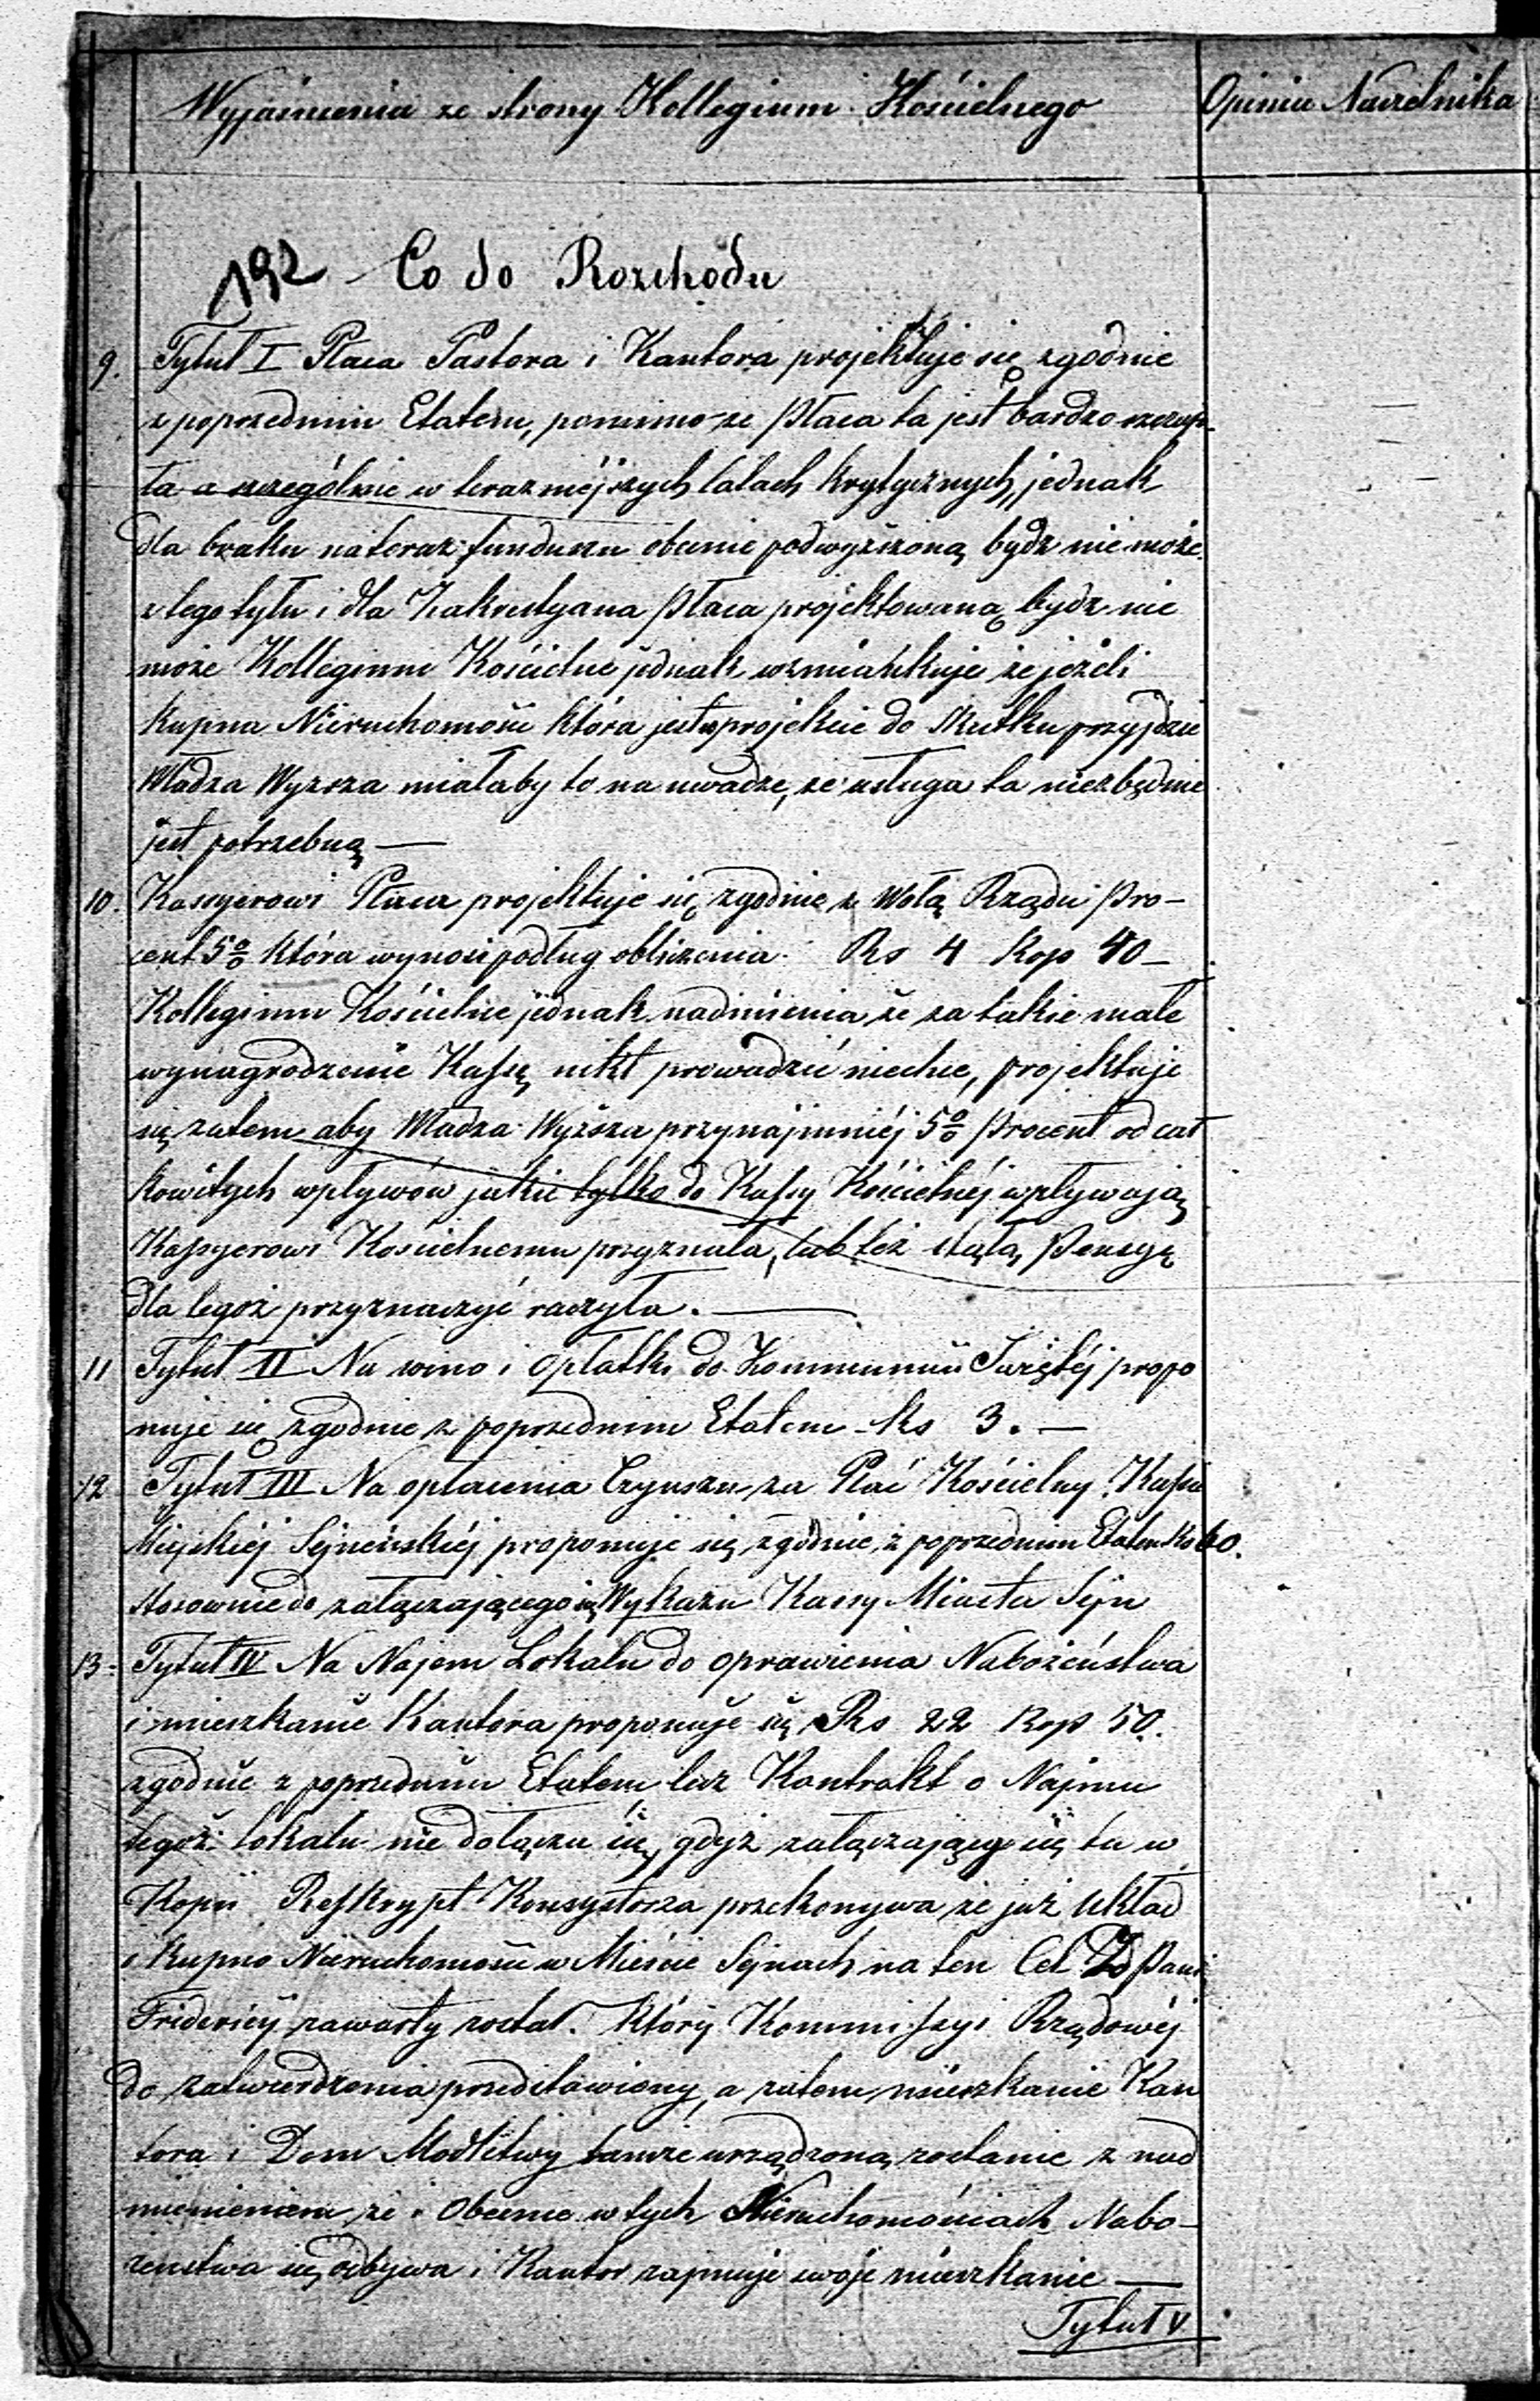 Wyjaśnienia ze strony Kollegium Kościelnego
Opinia Naczelnika
192 Co do Rozchodu
9. Tytuł I Płaca Pastora i Kantora projektuje się zgodnie
z poprzednim Etatem, pomimo że płaca ta jest bardzo szczup-
ła a szczególnie w teraźniéjszych latach krytycznych, jednak
dla braku na teraz funduszu obecnie podwyższoną bydz nie może
z tego tytu i dla Zakrystyana płaca projektowaną bydz nie
może Kollegium Kościelne jednak wzmiankuje że jeżeli
Kupna Nieruchomości która jest w projekcie do skutku przyjdzie
Władza Wyższa miałaby to na uwadze, że usługa ta niezbędnie
jest potrzebną —
10. Kassyerowi Płaca projektuje się zgodnie z Wolą Rządu Pro-
cent 5% która wynosi podług obliczenia Rs 4 Kop 40 —
Kollegium Kościelne jednak nadmienia że za takie małe
wynagrodzenie Kassę nikt prowadzić niechce, projektuje
się zatem aby Władza Wyższa przynajmniéj 5% Procent od cał
kowitych wpływów jakie tylko do Kassy Kościelnéj wpływają
Kassyerowi Kościelnemu przyznała, lub też stałą Pensyą
dla tegoż przyznaczyć raczyła. —
11 Tytuł II Na wino i Opłatki do Kommunii Świętéj propo
nuje się zgodnie z poprzednim Etatem Rs 3. —
12 Tytuł III Na opłacenia Czynszu za Plac Kościelny Kassie
Miejskiéj Sejneńskiéj proponuje się zgodnie z poprzednim Etatem Ko 60.
stosownie do załączającego się Wykazu Kassy Miasta Sejn
13. Tytuł IV Na Najem Lokalu do oprawienia Nabożeństwa
i mieszkanie Kantora proponuje się Rs 22 Kop 50.
zgodnie z poprzednim Etatem lecz Kontrakt o Najmu
tegoż lokalu nie dołącza się, gdyż załączający się tu w
Kopii Reskrypt Konsystorza przekonywa że już Układ
i Kupno Nieruchomości w Mieście Sejnach na ten Cel Zd Pani
Fridericij zawarty został. który Kommissyi Rządowéj
do zatwierdzenia przedstawiony, a zatem mieszkanie Kan
tora i Dom Modlitwy tamże urządzoną zostanie z nad
mienieniem że i Obecnie w tych Nieruchomościach Nabo-
żeństwa się odbywa i Kantor zajmuje swoje mieszkanie —
Tytuł V